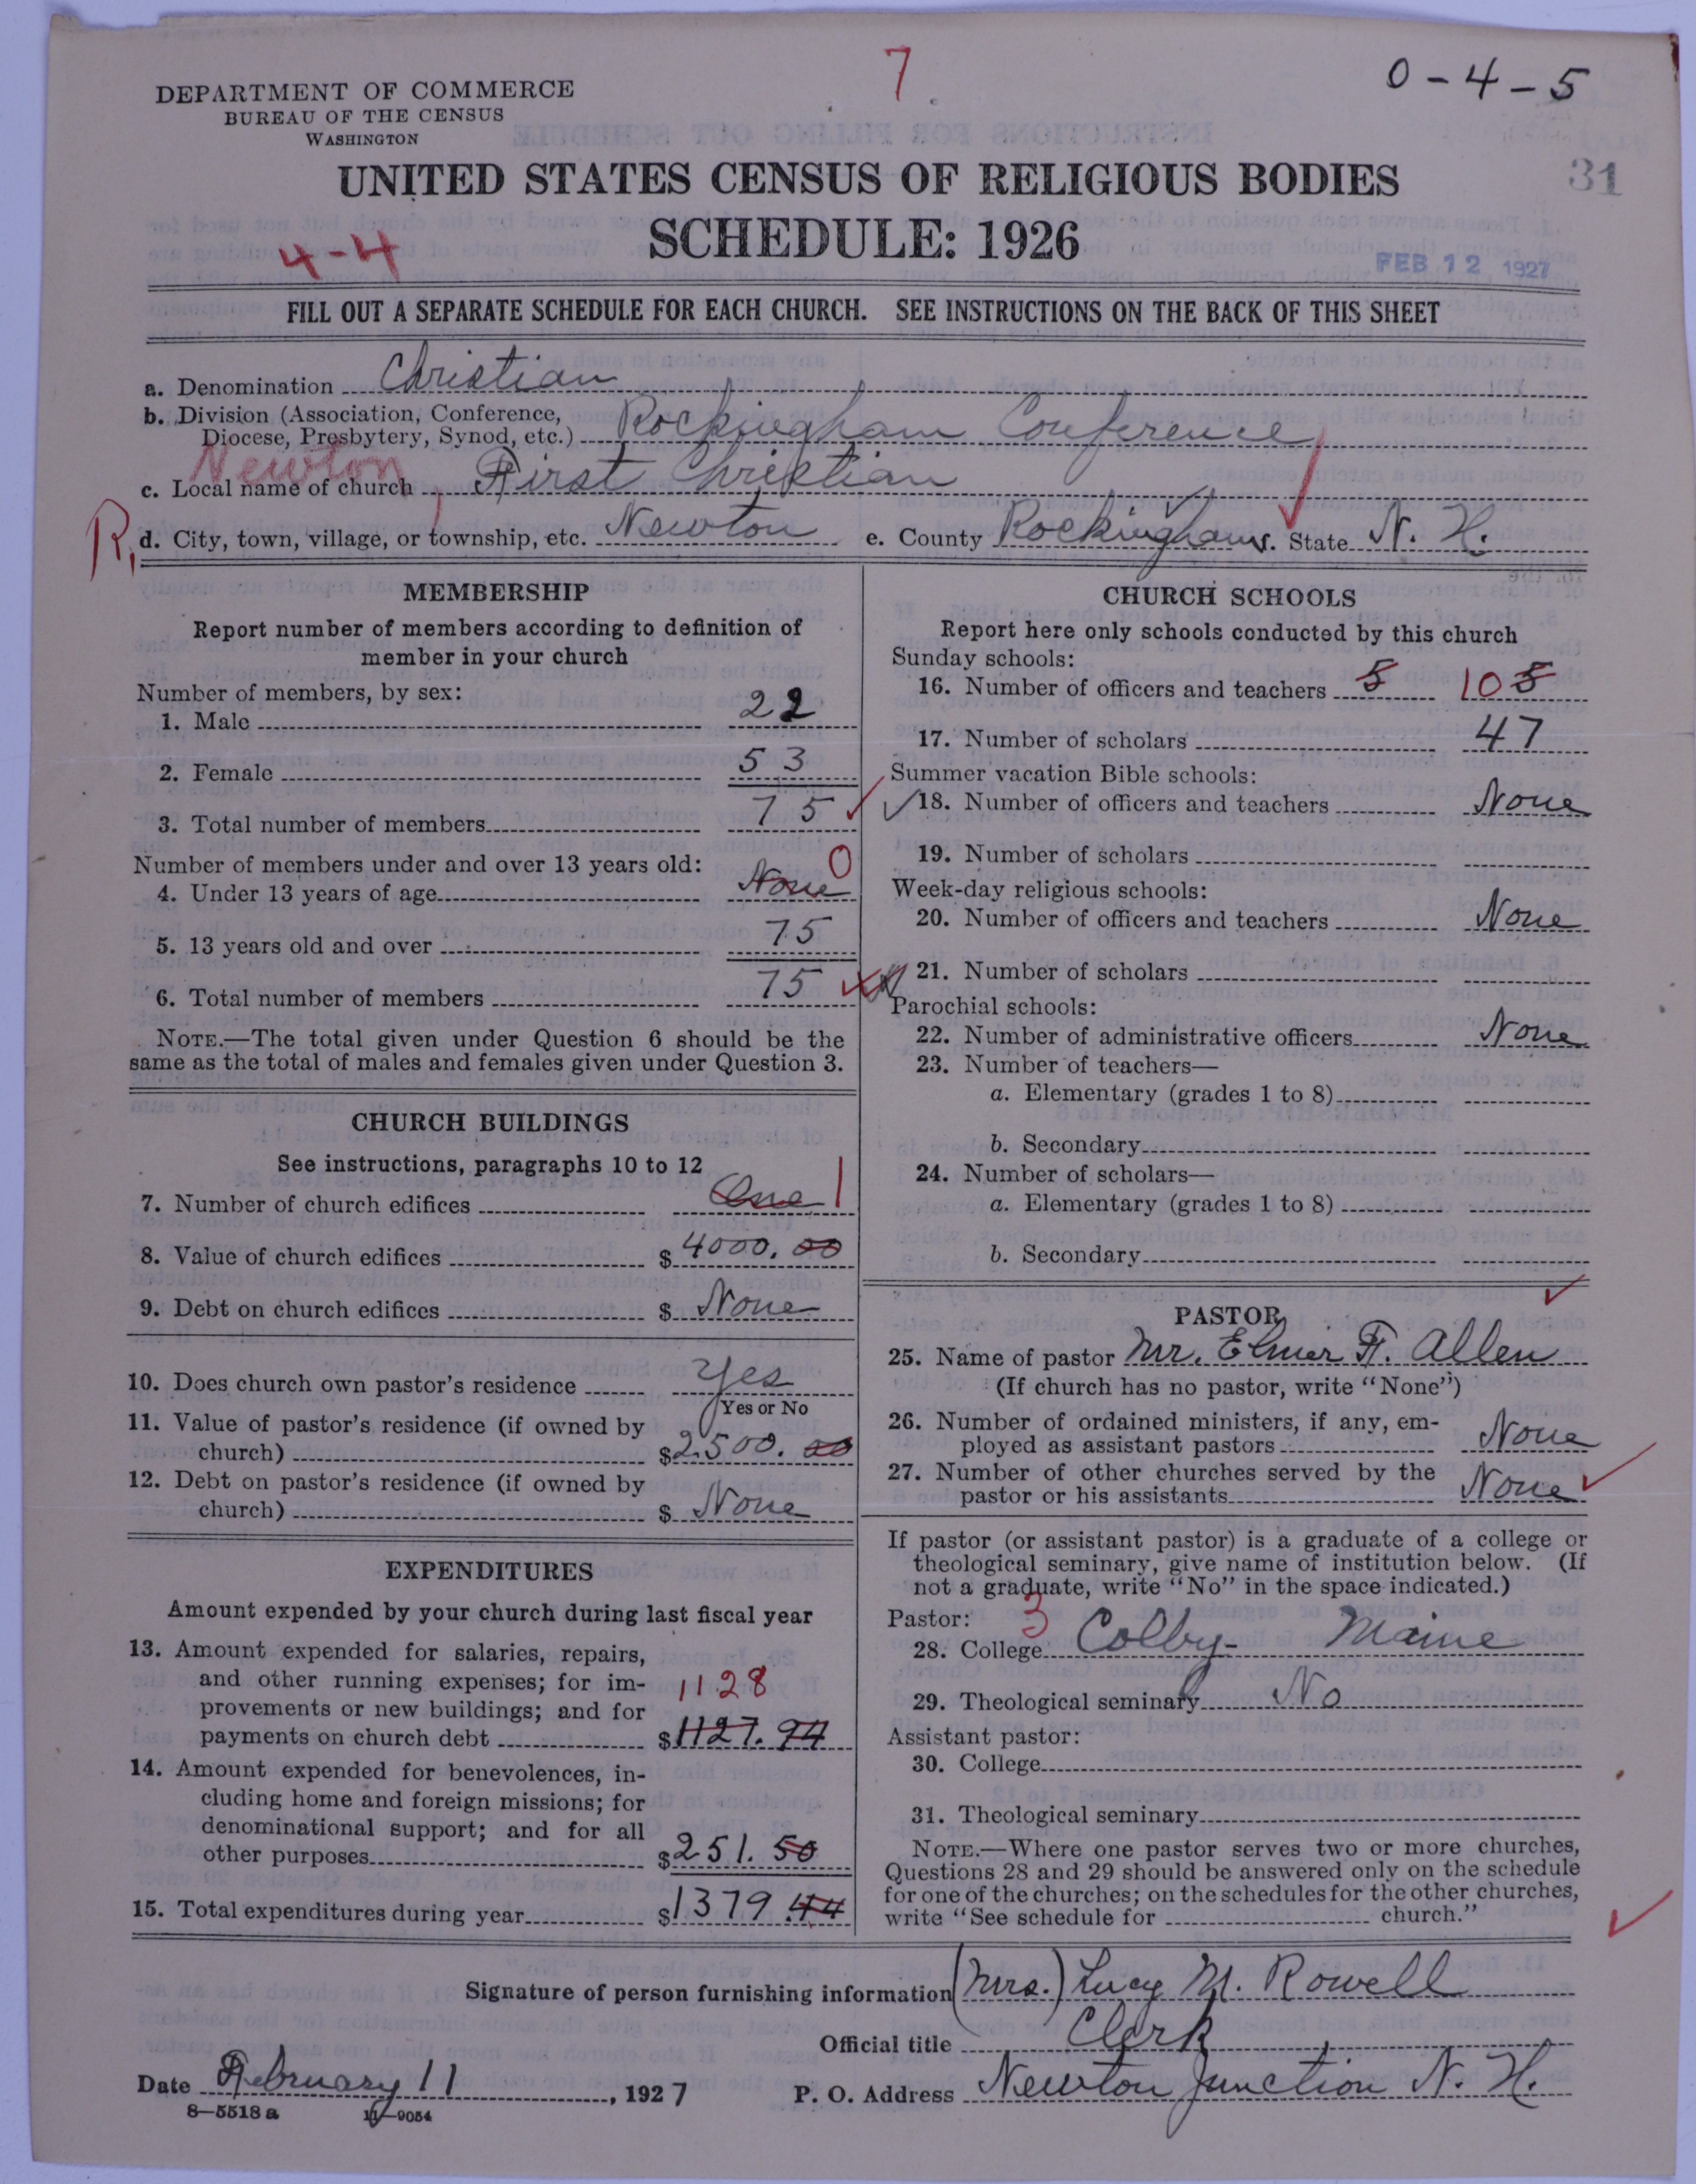 7
0-4-5
DEPARTMENT OF COMMERCE
BUREAU OF THE CENSUS
WASHINGTON
UNITED STATES CENSUS OF RELIGIOUS BODIES
31
SCHEDULE: 1926
4-4
FEB 12 1927
FILL OUT A SEPARATE SCHEDULE FOR EACH CHURCH. SEE INSTRUCTIONS ON THE BACK OF THIS SHEET
a. Denomination Christian
b. Division (Association, Conference,
Diocese, Presbytery, Synod, etc.) Rockingham Conference
Newton
c. Local name of church First Christian
R. d. City, town, village, or township, etc. Newton e. County Rockingham f. State N. H.
MEMBERSHIP
Report number of members according to definition of
member in your church
Number of members, by sex:
1. Male 22
2. Female 53
3. Total number of members 75
Number of members under and over 13 years old:
4. Under 13 years of age None 0
5. 13 years old and over 75
6. Total number of members 75
NOTE.—The total given under Question 6 should be the
same as the total of males and females given under Question 3.
CHURCH BUILDINGS
See instructions, paragraphs 10 to 12
7. Number of church edifices One 1
8. Value of church edifices $4000.00
9. Debt on church edifices $ None
10. Does church own pastor's residence Yes
Yes or No
11. Value of pastor's residence (if owned by
church) $2500.00
12. Debt on pastor's residence (if owned by
church) $ None
EXPENDITURES
Amount expended by your church during last fiscal year
13. Amount expended for salaries, repairs,
and other running expenses; for im-
1128
provements or new buildings; and for
payments on church debt $1127.94
14. Amount expended for benevolences, in-
cluding home and foreign missions; for
denominational support; and for all
other purposes $251.50
15. Total expenditures during year $1379.44
CHURCH SCHOOLS
Report here only schools conducted by this church
Sunday schools:
16. Number of officers and teachers 5 10 5
17. Number of scholars 47
Summer vacation Bible schools:
18. Number of officers and teachers None
19. Number of scholars
Week-day religious schools:
20. Number of officers and teachers None
21. Number of scholars
Parochial schools:
22. Number of administrative officers None
23. Number of teachers—
a. Elementary (grades 1 to 8)
b. Secondary
24. Number of scholars—
a. Elementary (grades 1 to 8)
b. Secondary
PASTOR
25. Name of pastor Mr. Elmer F. Allen
(If church has no pastor, write "None")
26. Number of ordained ministers, if any, em-
ployed as assistant pastors None
27. Number of other churches served by the
pastor or his assistants None
If pastor (or assistant pastor) is a graduate of a college or
theological seminary, give name of institution below. (If
not a graduate, write "No" in the space indicated.)
Pastor: 3
28. College Colby - Maine
29. Theological seminary No
Assistant pastor:
30. College
31. Theological seminary
NOTE.—Where one pastor serves two or more churches,
Questions 28 and 29 should be answered only on the schedule
for one of the churches; on the schedules for the other churches,
write "See schedule for church."
Signature of person furnishing information (Mrs.) Lucy M. Rowell
Official title Clerk
Date February 11, 1927 P. O. Address Newton Junction N. H.
8-5518 a 11-9054